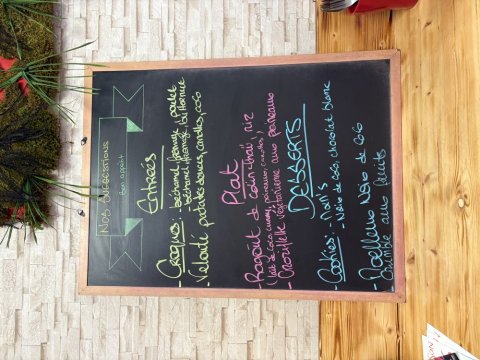 NOS SUGGESTIONS
bon appétit
Entrées
- Croques: - béchamel, fromage, poulet
- béchamel, fromage, butternut
- Velouté patates douces, carottes, coco
Plat
- Ragoût de colin thaï, riz
(lait de coco, curry, poireaux, carottes)
- Croziflette végétarienne aux poireaux
DESSERTS
- Cookies: - M&M's
- Noix de coco, chocolat blanc
- Moelleux Noix de coco
- Crumble aux fruits